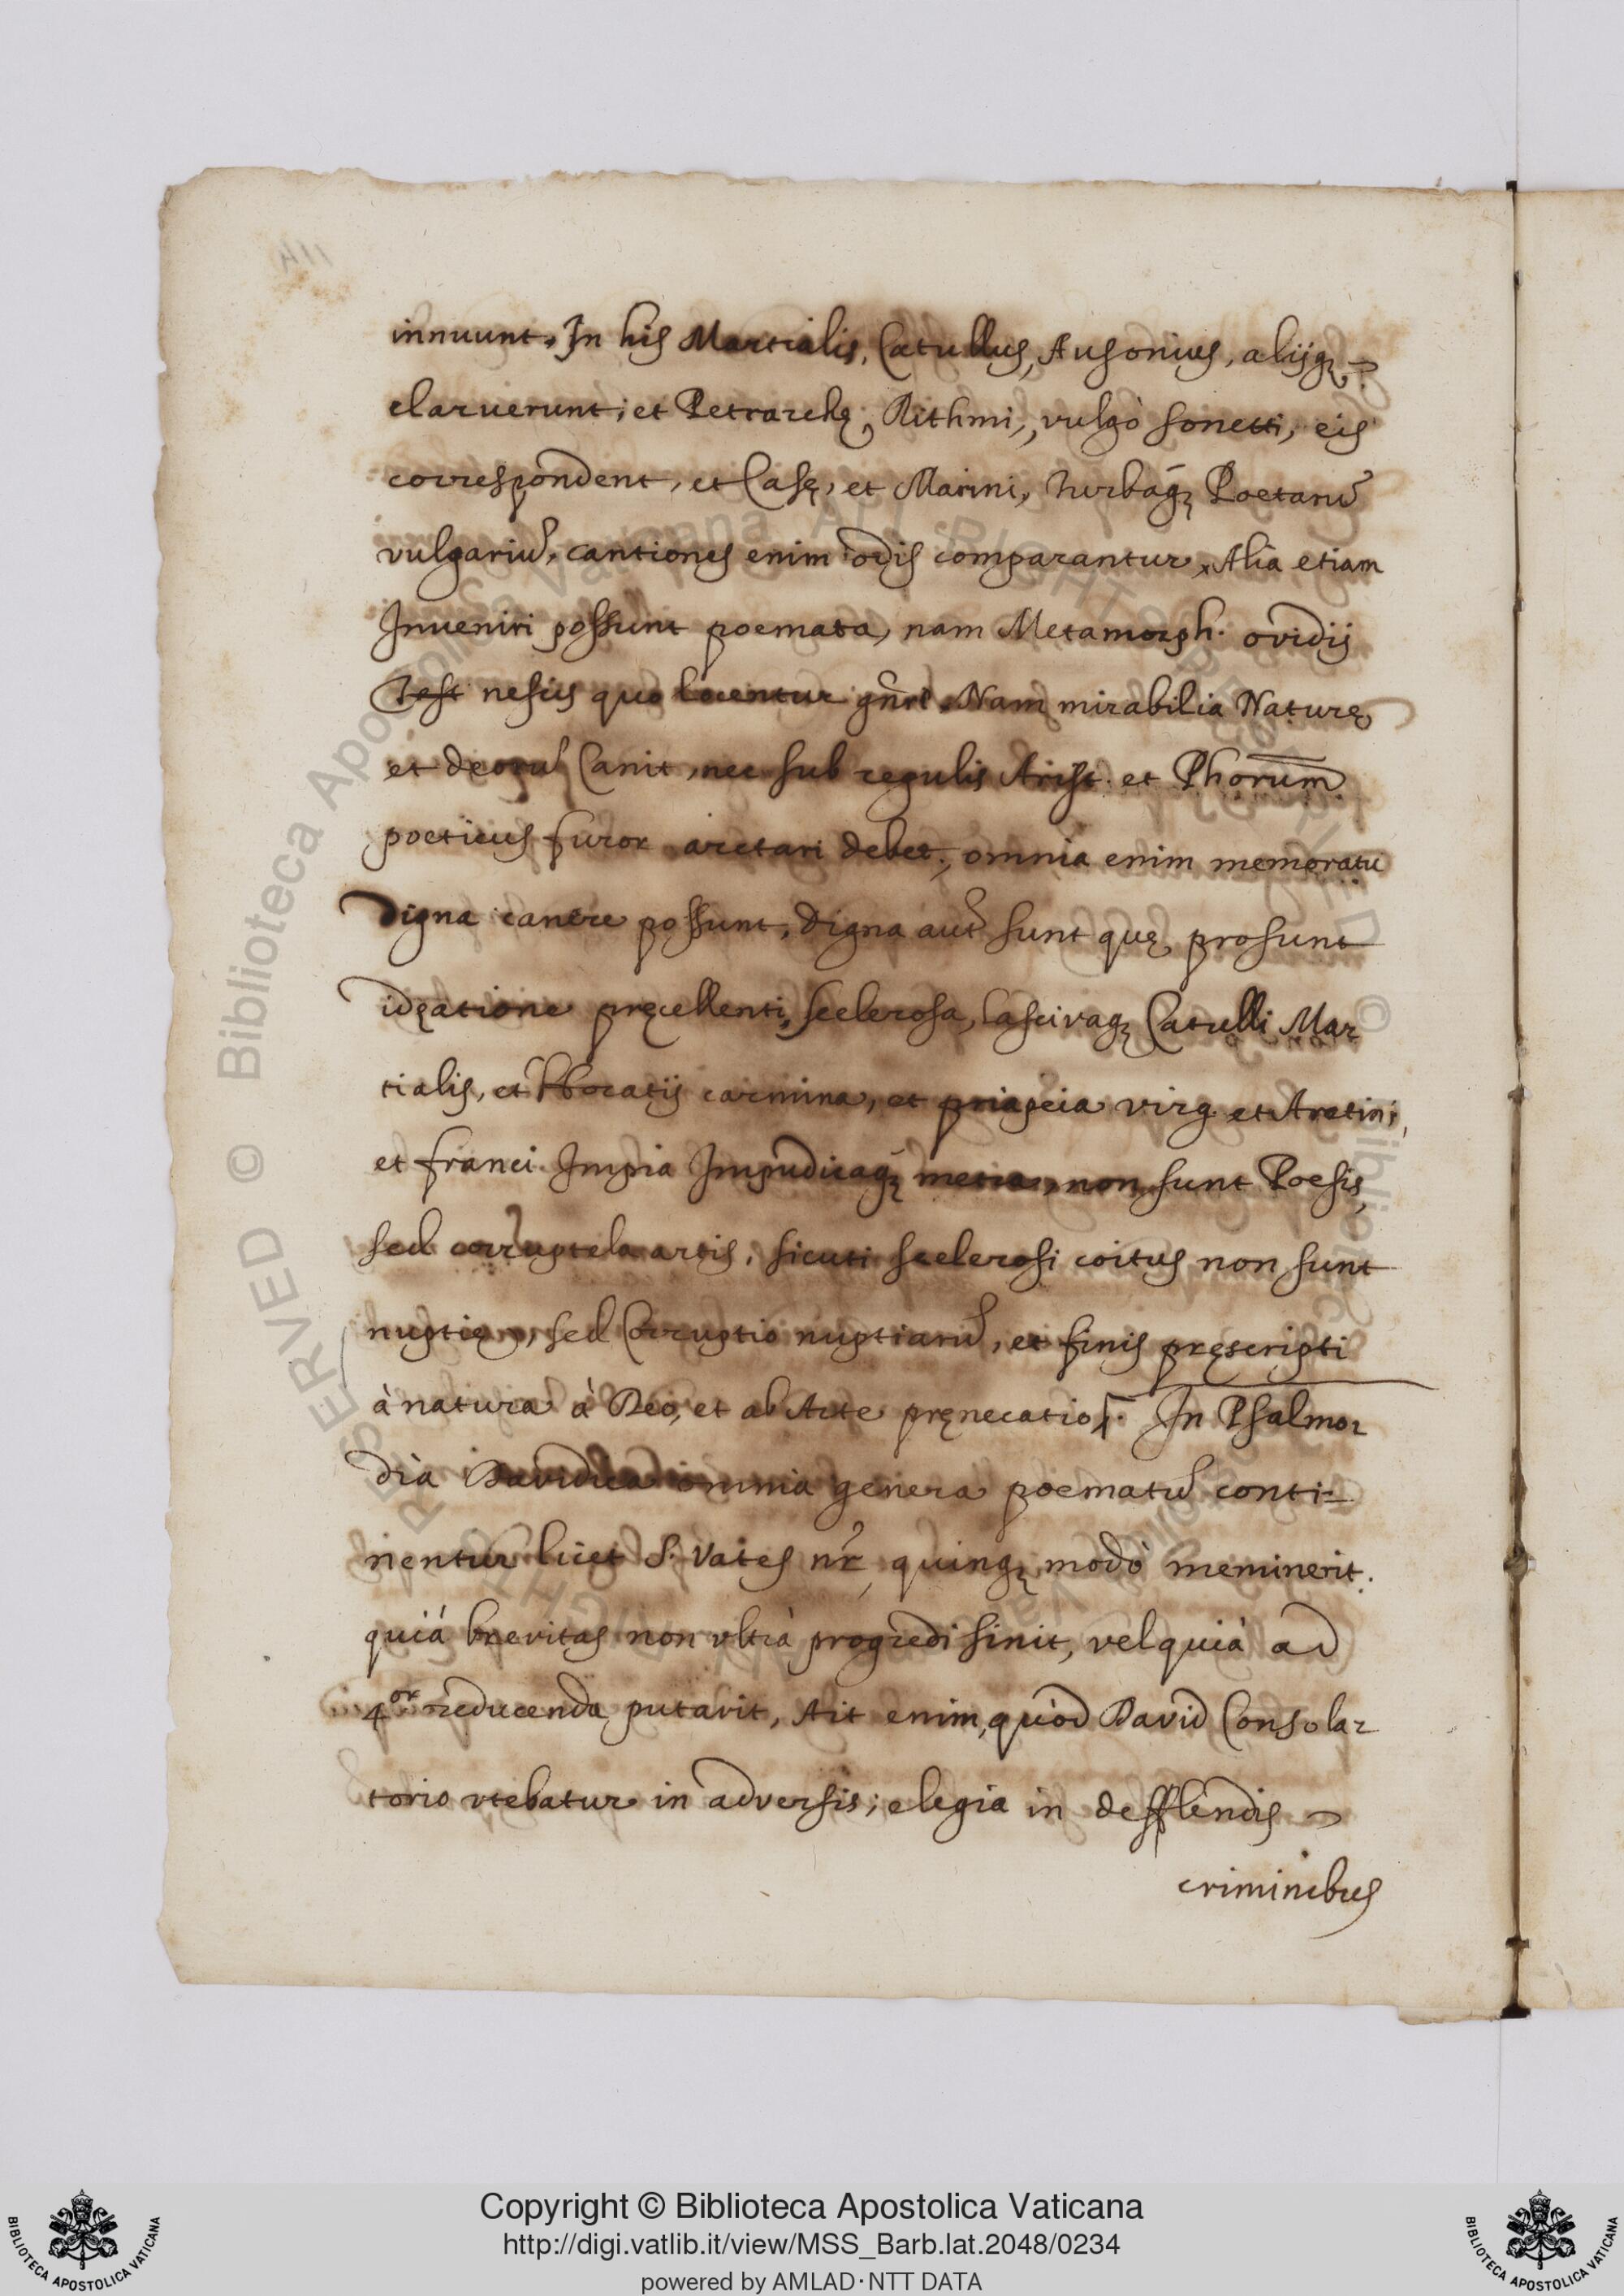 innuunt. In his Martialis, Catullus, Ausonius, alijq́ꝫ
claruerunt; et Petrarchę, Rithmi, vulgò sonetti, eis
correspondent, et Casę, et Marini, turbaq́ꝫ Poetarū
vulgariū, cantiones enim odis comparantur, Alia etiam
Inueniri possunt poemata, nam Metamorph. ovidij
nesciꝰ quo locentur gñre. Nam mirabilia Naturę
et deorū Canit, nec sub regulis Arist. et Phorum
poeticus furor arctari debet; omnia enim memoratu
digna canere possunt, digna aut̃ sunt quę prosunt
idęatione pręcellenti, scelerosa, lascivaqꝫ Catulli Mar
tialis, et Bocatij carmina, et priapeia virg. et Aretini,
et franci Impia Impudicaq́ꝫ metra, non sunt Poesis,
sed corruptela artis, sicuti scelerosi coitus non sunt
nuptię, sed Corruptio nuptiarū, et finis pręscripti
à natura à Deo, et ab Arte pręnecatio. In Psalmo
dia Davidica omnia genera poematū conti=
nentur licet S. Vates nr̃ quinqꝫ modò meminerit.
quià brevitas non vltrà progredi sinit, vel quià ad
4or reducenda putavit, Ait enim, quòd David Consola
torio vtebatur in adversis; elegia in defflendis
criminibus
Copyright © Biblioteca Apostolica Vaticana
http://digi.vatlib.it/view/MSS_Barb.lat.2048/0234
powered by AMLAD·NTT DATA